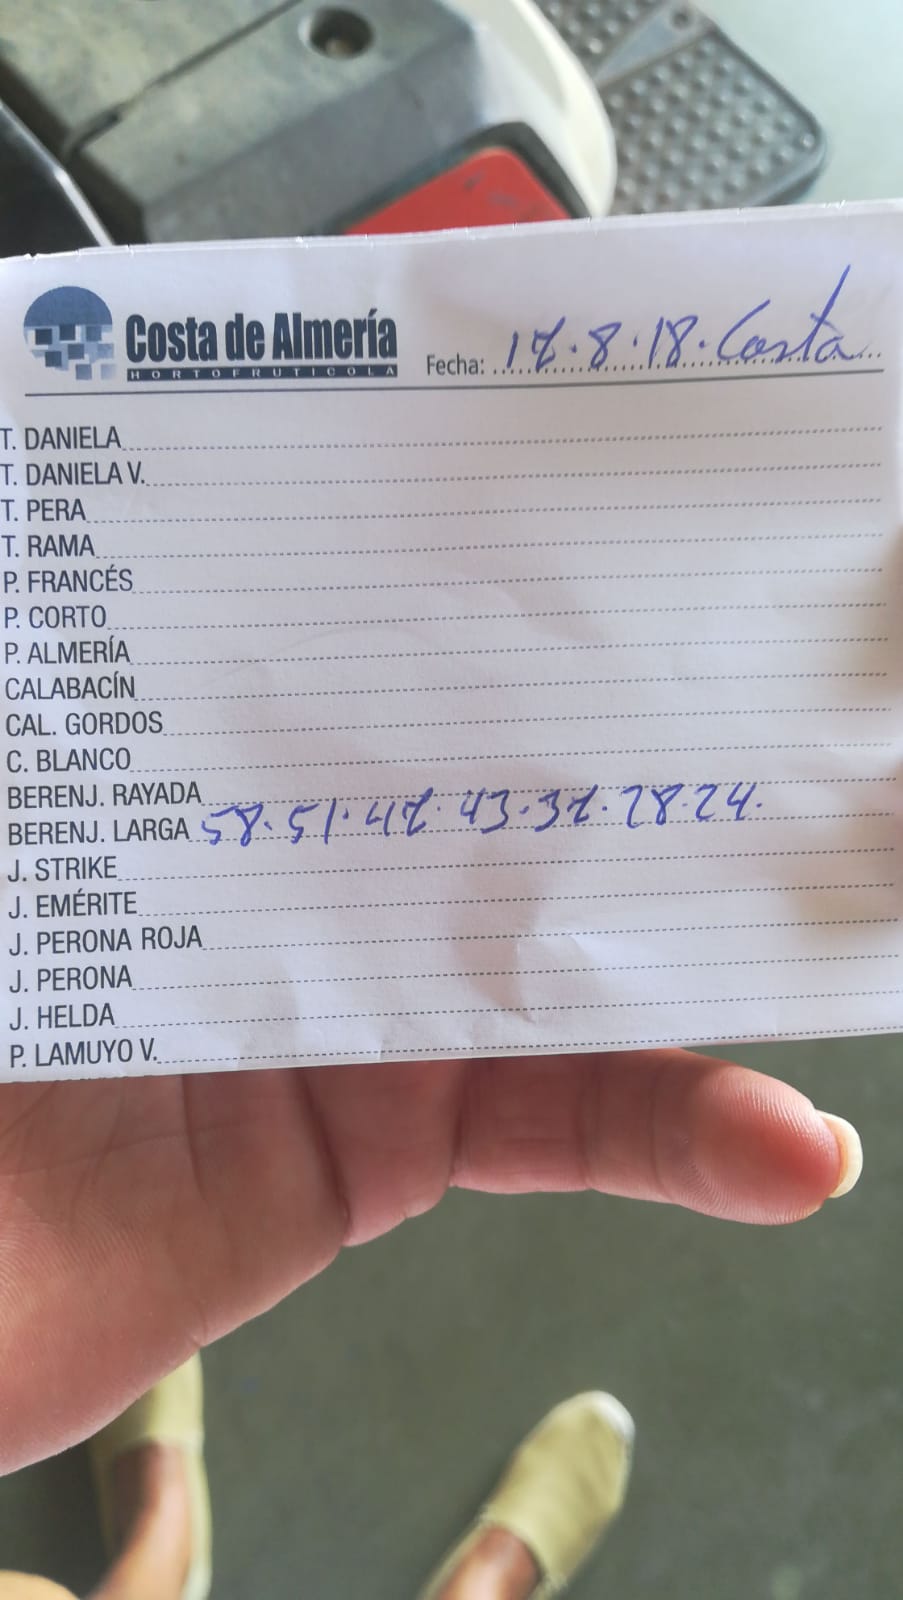 Costa de Almería
HORTOFRUTICOLA
Fecha: 17.8.18. Costa
T. DANIELA
T. DANIELA V.
T. PERA
T. RAMA
P. FRANCÉS
P. CORTO
P. ALMERÍA
CALABACÍN
CAL. GORDOS
C. BLANCO
BERENJ. RAYADA
BERENJ. LARGA 58. 51. 47. 43. 37. 28. 24.
J. STRIKE
J. EMÉRITE
J. PERONA ROJA
J. PERONA
J. HELDA
P. LAMUYO V.